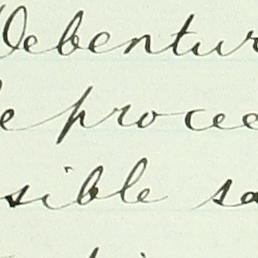 Debentur
e procee
sible sa